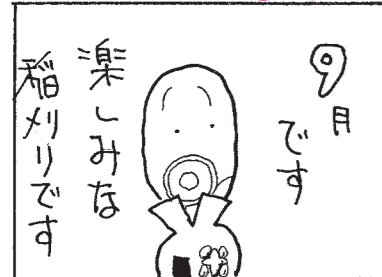 9月
です
楽しみな
稲刈りです